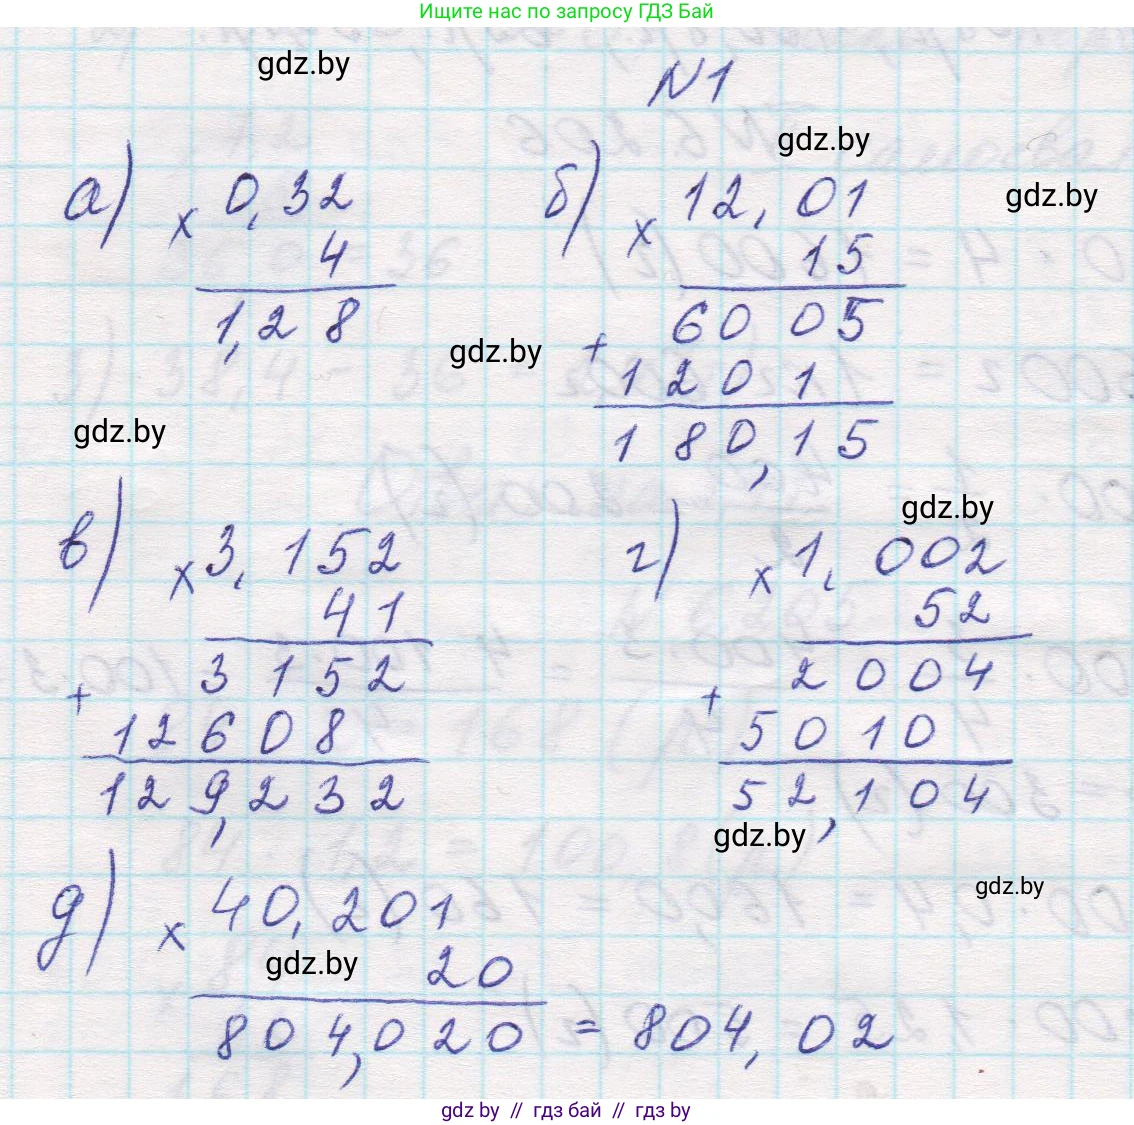 Ищите нас по запросу ГДЗ Бай
gdz.by
N1
gdz.by
gdz.by
а) × 0,32
4
1,28
б) × 12,01
15
6005
+
1201
180,15
gdz.by
gdz.by
в) × 3,152
41
3152
+
12608
129,232
gdz.by
г) × 1,002
52
2004
+
5010
52,104
gdz.by
gdz.by
д) × 40,201
gdz.by
20
804,020 = 804,02
gdz by // гдз бай // gdz by